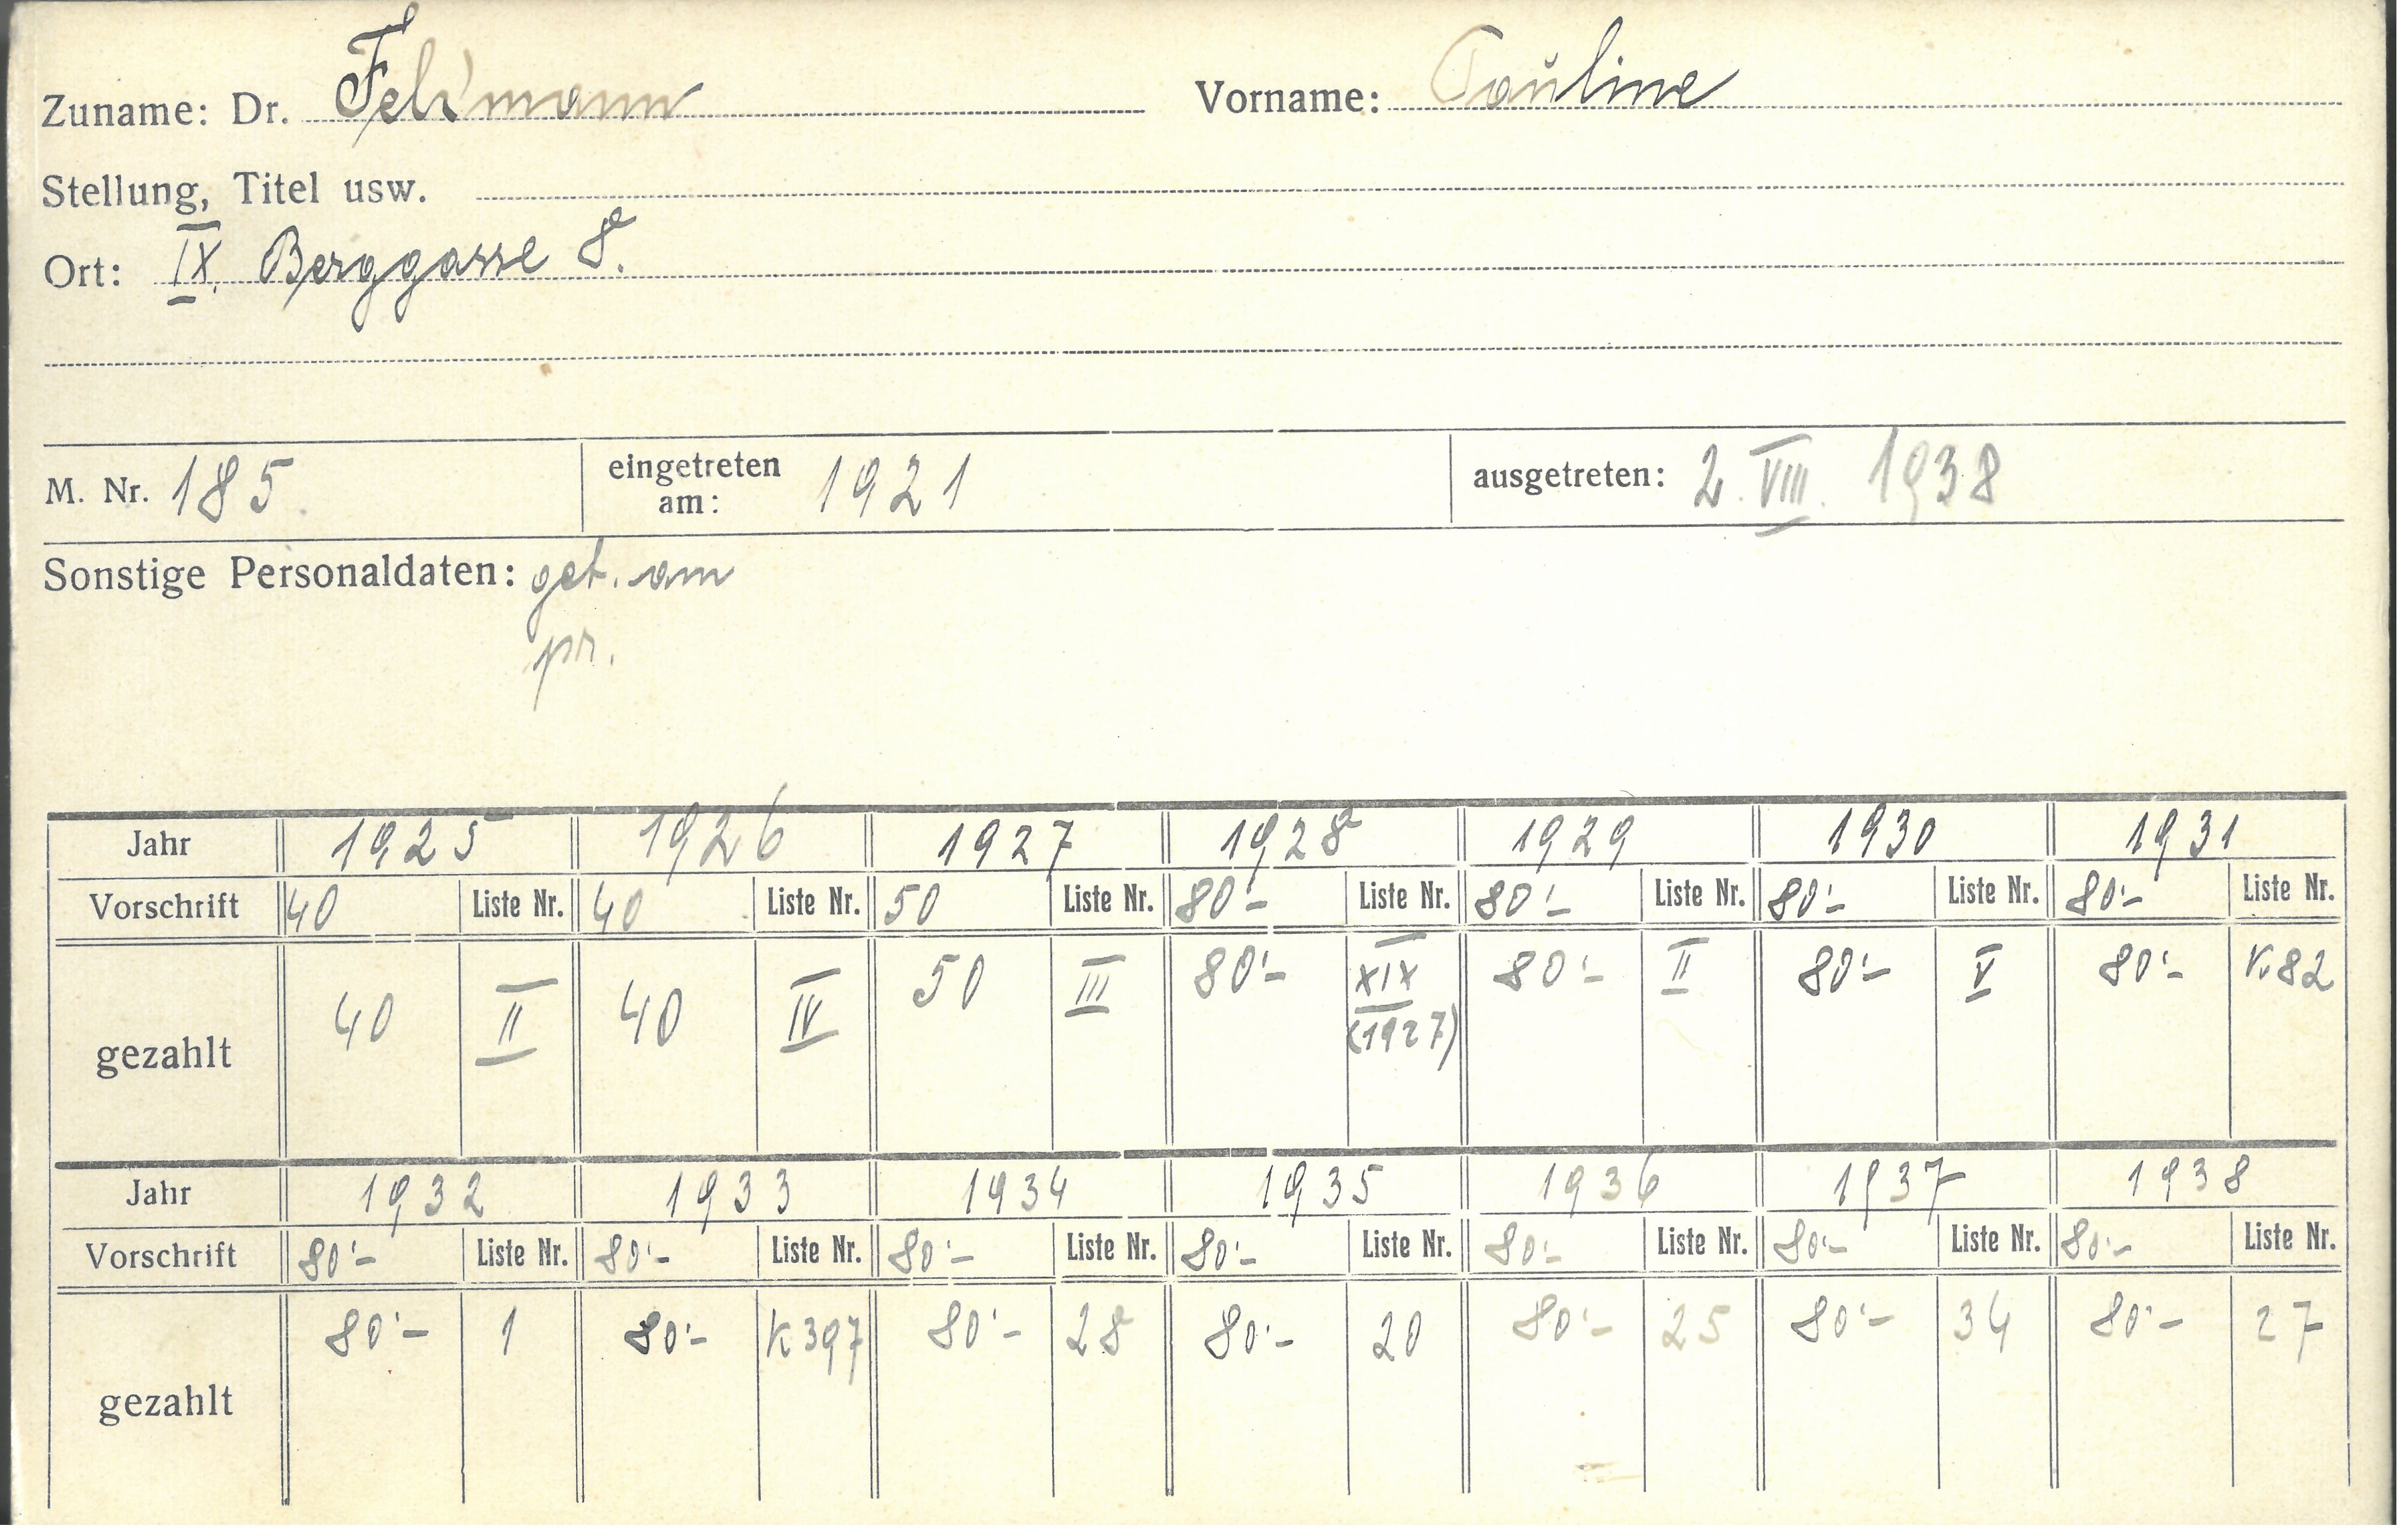 Zuname: Dr. Feldmann Vorname: Pauline
Stellung, Titel usw.
Ort: IX. Berggasse 8.
M. Nr. 185. eingetreten am: 1921 ausgetreten: 2. VIII. 1938
Sonstige Personaldaten: geb. am
pr.
Jahr 1925 1926 1927 1928 1929 1930 1931
Vorschrift 40 Liste Nr. 40 Liste Nr. 50 Liste Nr. 80'- Liste Nr. 80'- Liste Nr. 80'- Liste Nr. 80'- Liste Nr.
gezahlt 40 II 40 IV 50 III 80'- XIX (1927) 80'- II 80'- V 80'- K82
Jahr 1932 1933 1934 1935 1936 1937 1938
Vorschrift 80'- Liste Nr. 80'- Liste Nr. 80'- Liste Nr. 80'- Liste Nr. 80'- Liste Nr. 80'- Liste Nr. 80'- Liste Nr.
gezahlt 80'- 1 80'- K397 80'- 28 80'- 20 80'- 25 80'- 34 80'- 27